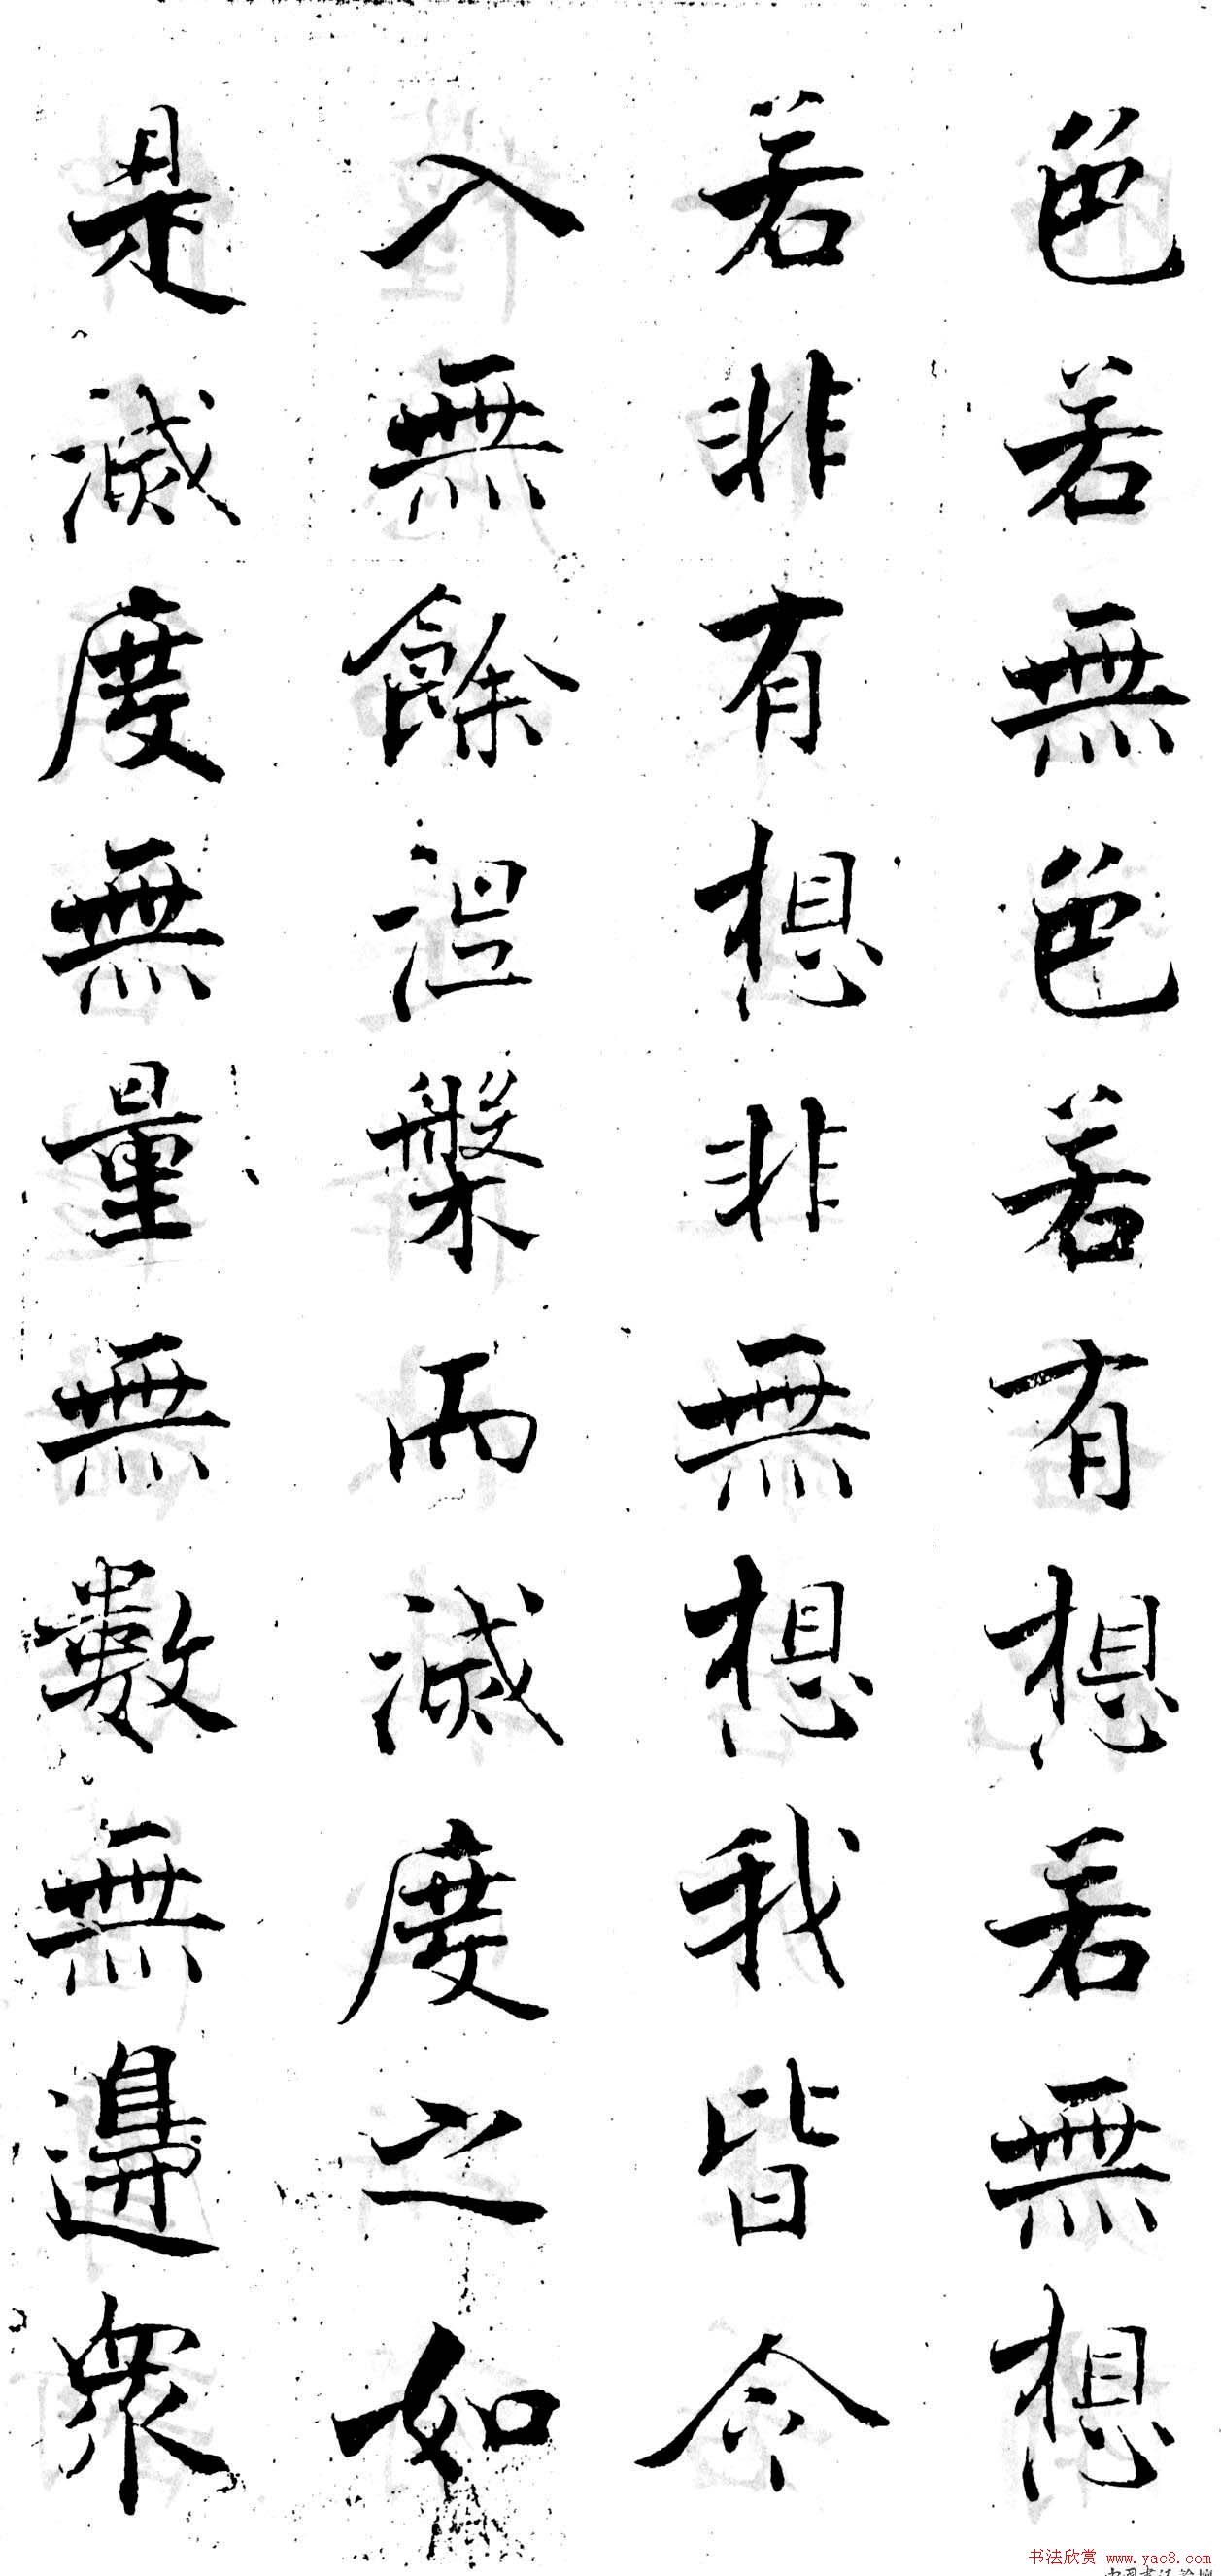 色若無色若有想若無想
若非有想非無想我皆令
入無餘涅槃而滅度之如
是滅度無量無數無邊衆
书法欣赏 www.yac8.com